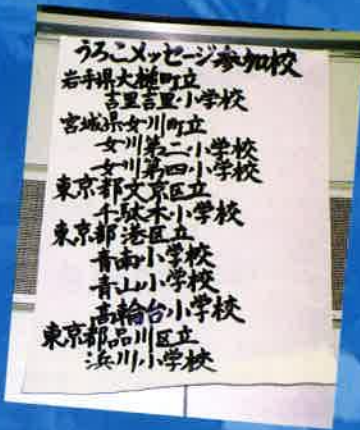 うろこメッセージ参加校
岩手県大槌町立
吉里吉里小学校
宮城県女川町立
女川第二小学校
女川第四小学校
東京都文京区立
千駄木小学校
東京都港区立
青南小学校
青山小学校
高輪台小学校
東京都品川区立
浜川小学校